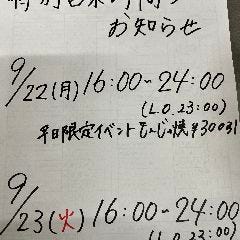 特別営業時間の
お知らせ
9/22(月)16:00~24:00
(L.O.23:00)
平日限定イベントもんじゃ焼¥300
9/23(火)16:00~24:00
(L.O.23:00)